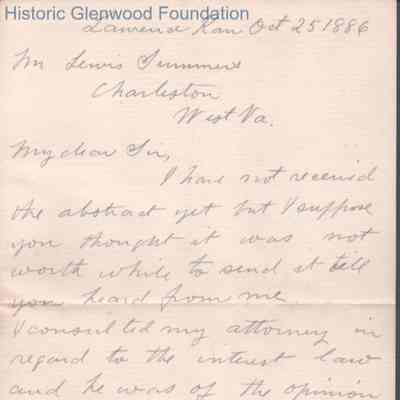 Historic Glenwood Foundation
Lawrence Kan Oct 25 1886
Mr Lewis Summers
Charleston
West Va.
My dear Sir,
I have not received
the abstract yet but I suppose
you thought it was not
worth while to send it till
you heard from me.
I consulted my attorney in
regard to the interest law
and he was of the opinion